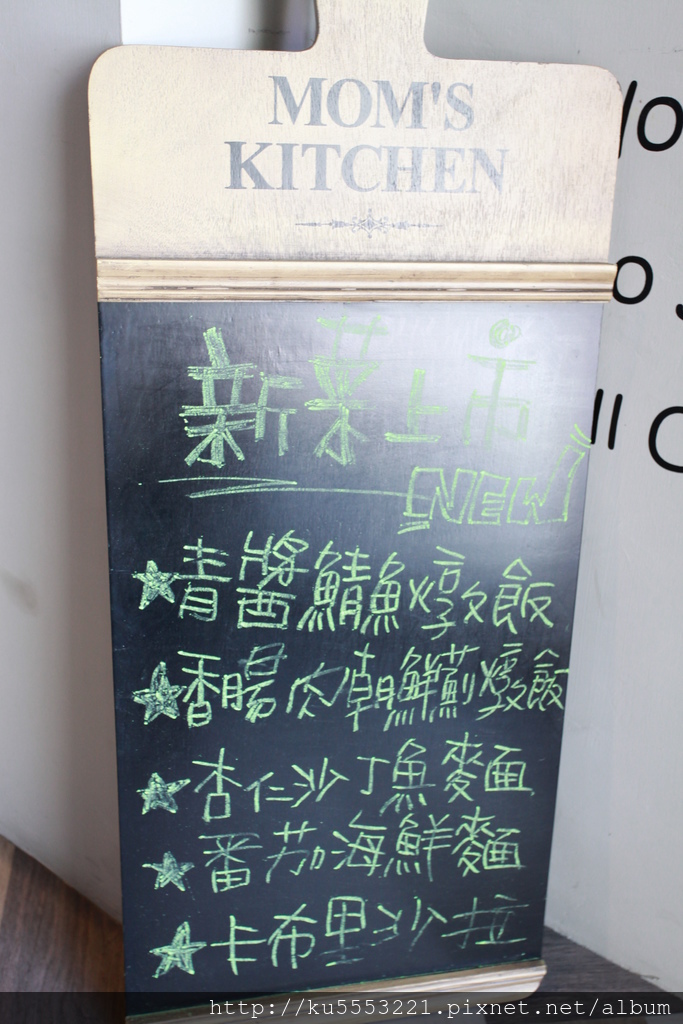 MOM'S
KITCHEN
新菜上市
NEW!
青醬鯖魚燉飯
香腸肉朝鮮薊燉飯
杏仁沙丁魚麥面
番茄海鮮麵
卡布里沙拉
http://ku5553221.pixnet.net/album